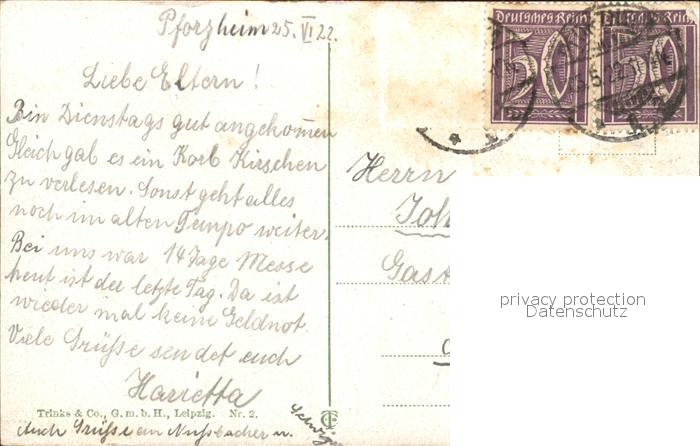 Pforzheim 25. VI 22.
Liebe Eltern!
Bin Dienstags gut angekommen
Gleich gab es ein Korb Kirschen
zu verlesen. Sonst geht alles
noch im alten Tempo weiter.
Bei uns war 14 Tage Messe
heut ist der letzte Tag. Da ist
wieder mal keine Geldnot.
Viele Grüsse sendet euch
Harietta
Trinks & Co., G. m. b. H., Leipzig. Nr. 2.
Auch Grüsse an Nussbacher u.
Deutsches Reich
50
Deutsches Reich
50
Herrn
Joh
Gast
privacy protection
Datenschutz